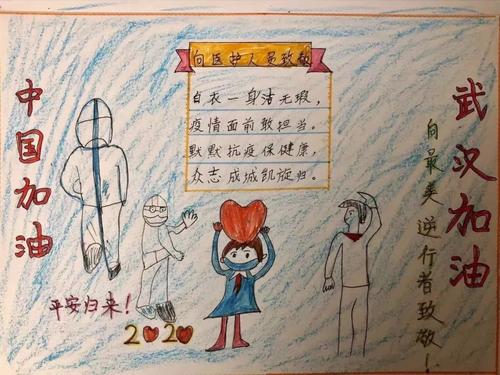 向医护人员致敬
白衣一身洁无瑕，
疫情面前敢担当。
默默抗疫保健康，
众志成城凯旋归。
中国加油
武汉加油
向最美逆行者致敬！
平安归来！
2020